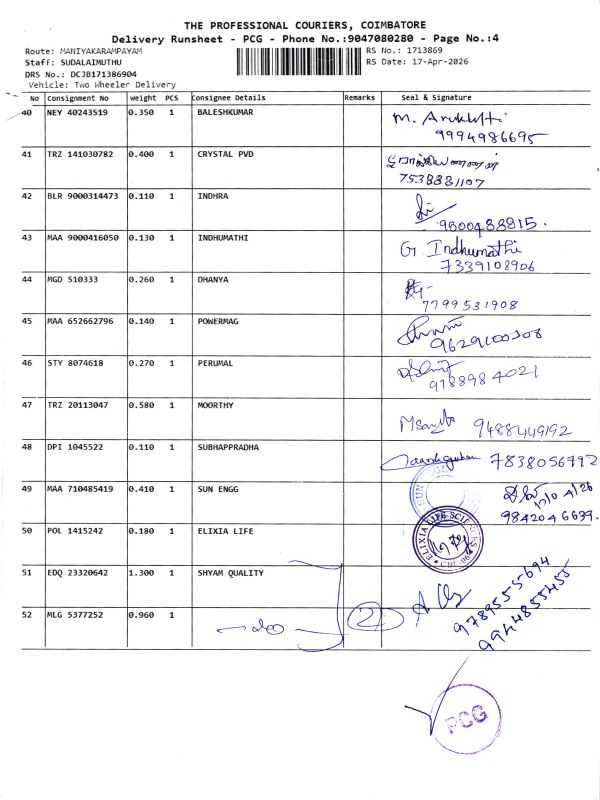 THE PROFESSIONAL COURIERS, COIMBATORE
Delivery Runsheet - PCG - Phone No.:9047080280 - Page No.:4
Route: MANIYAKARAMPAYAM RS No.: 1713869
Staff: SUDALAIMUTHU RS Date: 17-Apr-2026
DRS No.: DCJB171386904
Vehicle: Two Wheeler Delivery
No Consignment No Weight PCS Consignee Details Remarks Seal & Signature
40 NEY 40243519 0.350 1 BALESHKUMAR M.
9994986695
41 TRZ 141030782 0.400 1 CRYSTAL PVD
7538881107
42 BLR 9000314473 0.110 1 INDHRA
9500488815.
43 MAA 9000416050 0.130 1 INDHUMATHI G Indhumathi
7339108906
44 MGD 510333 0.260 1 DHANYA
7799531908
45 MAA 652662796 0.140 1 POWERMAG
9629100208
46 STY 8074618 0.270 1 PERUMAL
9788984021
47 TRZ 20113047 0.580 1 MOORTHY
9488449192
48 DPI 1045522 0.110 1 SUBHAPPRADHA 7838056792
49 MAA 710485419 0.410 1 SUN ENGG 17/04/26
9842046639.
50 POL 1415242 0.180 1 ELIXIA LIFE ELIXIA LIFE SCIENCES
51 EDQ 23320642 1.300 1 SHYAM QUALITY 9789555694
9944855455
52 MLG 5377252 0.960 1 2
PCG